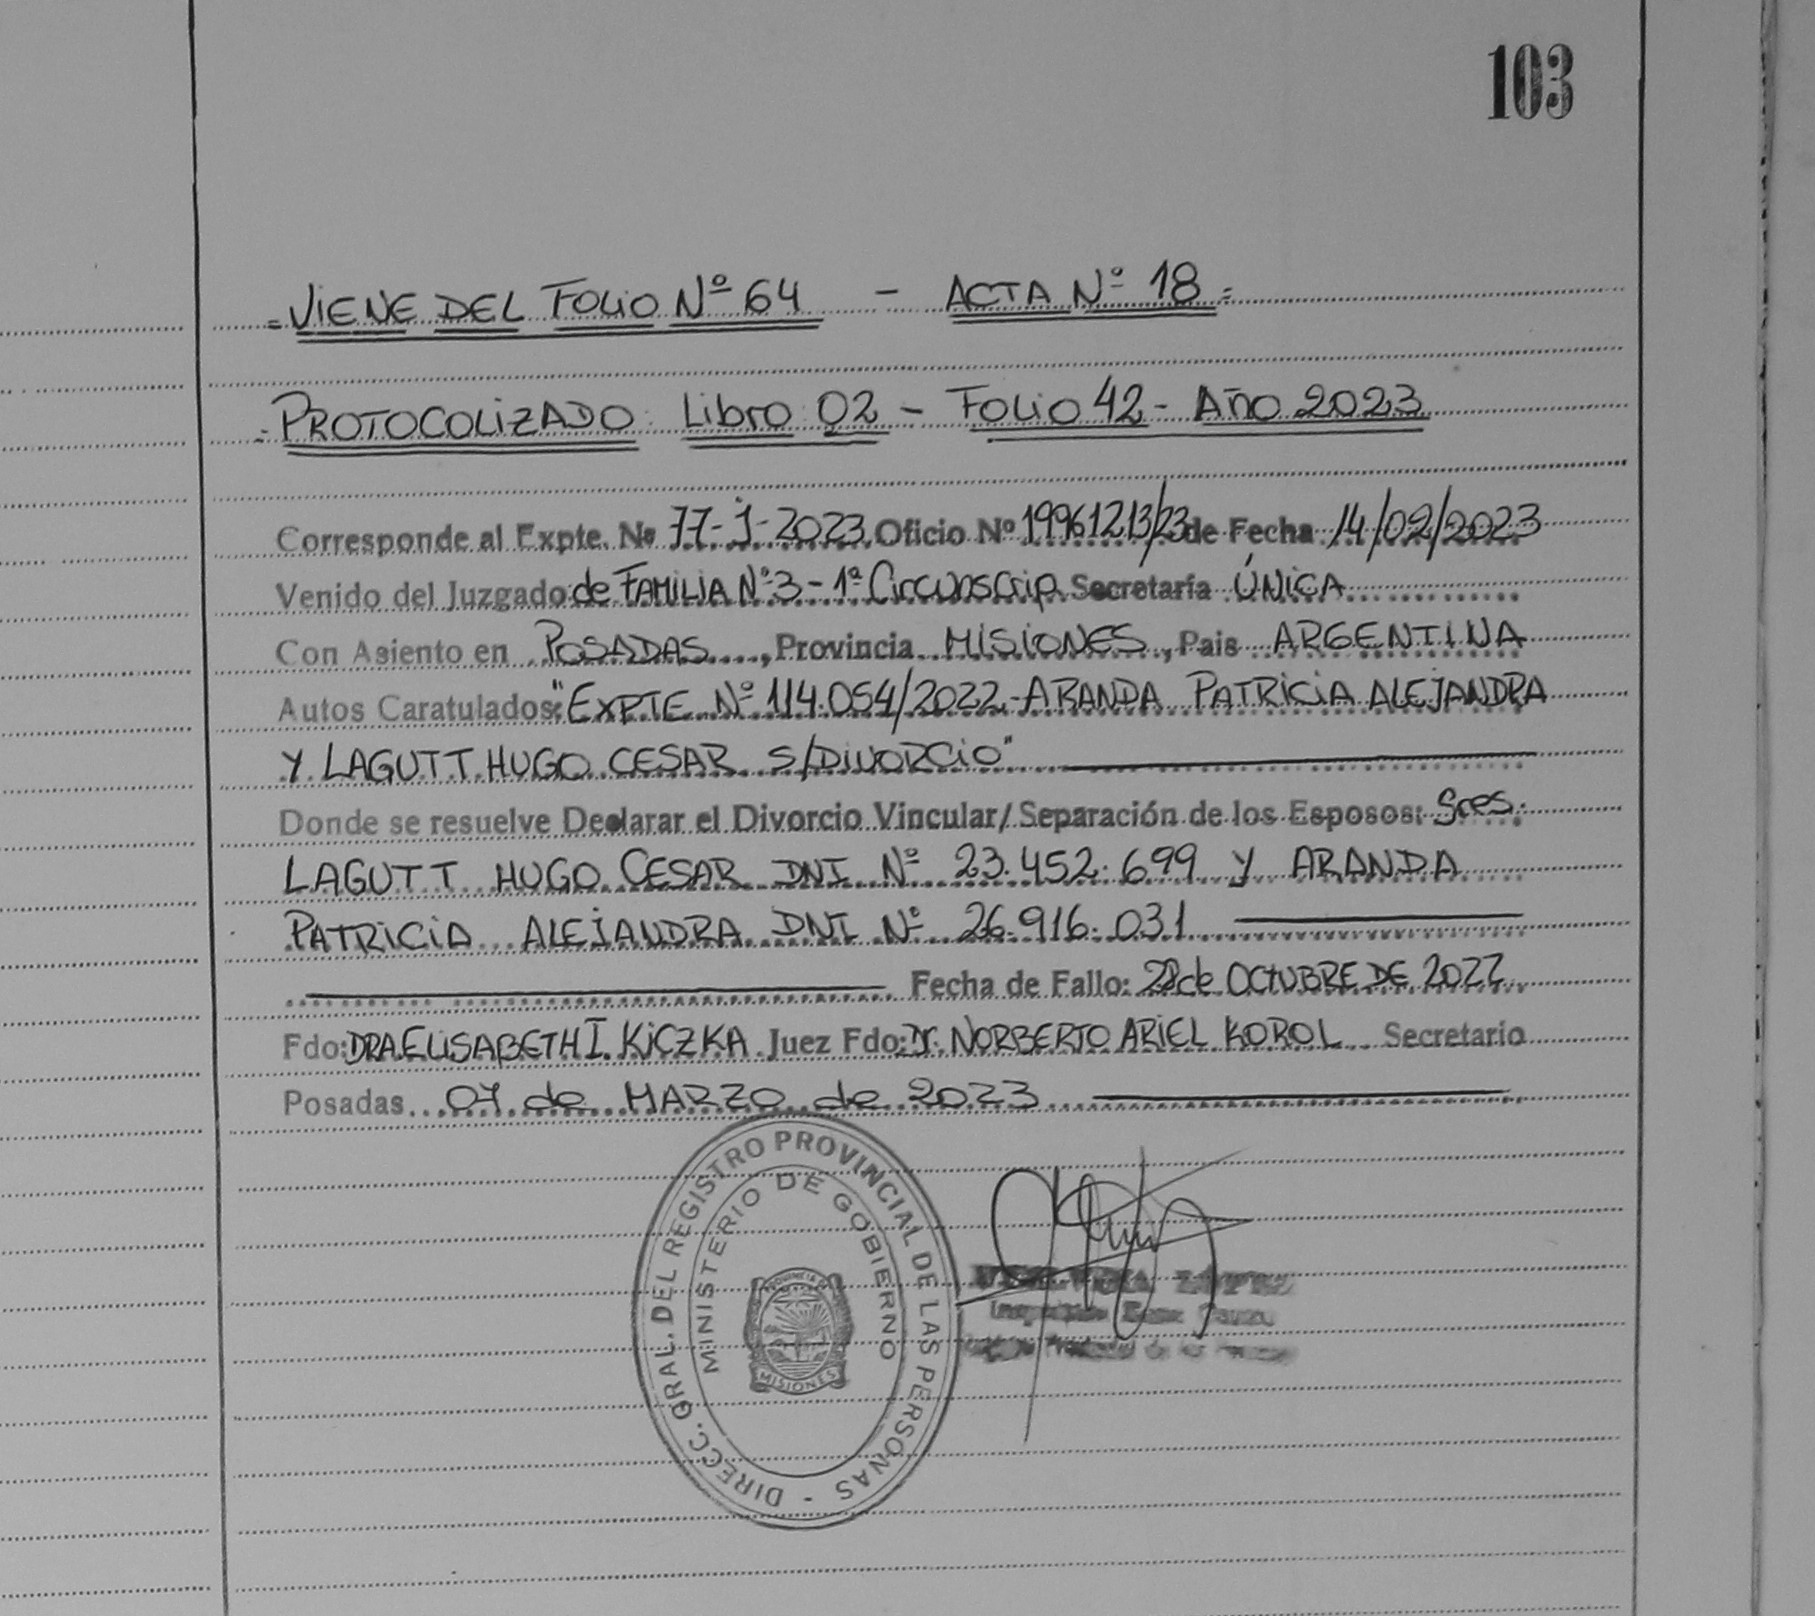 103
=VIENE DEL FOLIO Nº 64 - ACTA Nº 18=
=PROTOCOLIZADO: Libro 02 - FOLIO 42 - AÑO 2023
Corresponde al Expte. Nº 77-J-2023 Oficio Nº 19961213/23 de Fecha 14/02/2023
Venido del Juzgado: de FAMILIA Nº 3 - 1ª Circunscrip. Secretaría ÚNICA
Con Asiento en POSADAS, Provincia MISIONES, Pais ARGENTINA
Autos Caratulados: "EXPTE Nº 114.054/2022-ARANDA PATRICIA ALEJANDRA
Y LAGUTT HUGO CESAR S/DIVORCIO"
Donde se resuelve Declarar el Divorcio Vincular/Separación de los Esposos: Sres.
LAGUTT HUGO CESAR DNI Nº 23.452.699 y ARANDA
PATRICIA ALEJANDRA DNI Nº 26.916.031
Fecha de Fallo: 28 de OCTUBRE DE 2022
Fdo: DRA. ELISABETH I. KICZKA Juez Fdo: Dr. NORBERTO ARIEL KOROL Secretario
Posadas 07 de MARZO de 2023
DIRECC. GRAL. DEL REGISTRO PROVINCIAL DE LAS PERSONAS -
MINISTERIO DE GOBIERNO
PROVINCIA DE
MISIONES